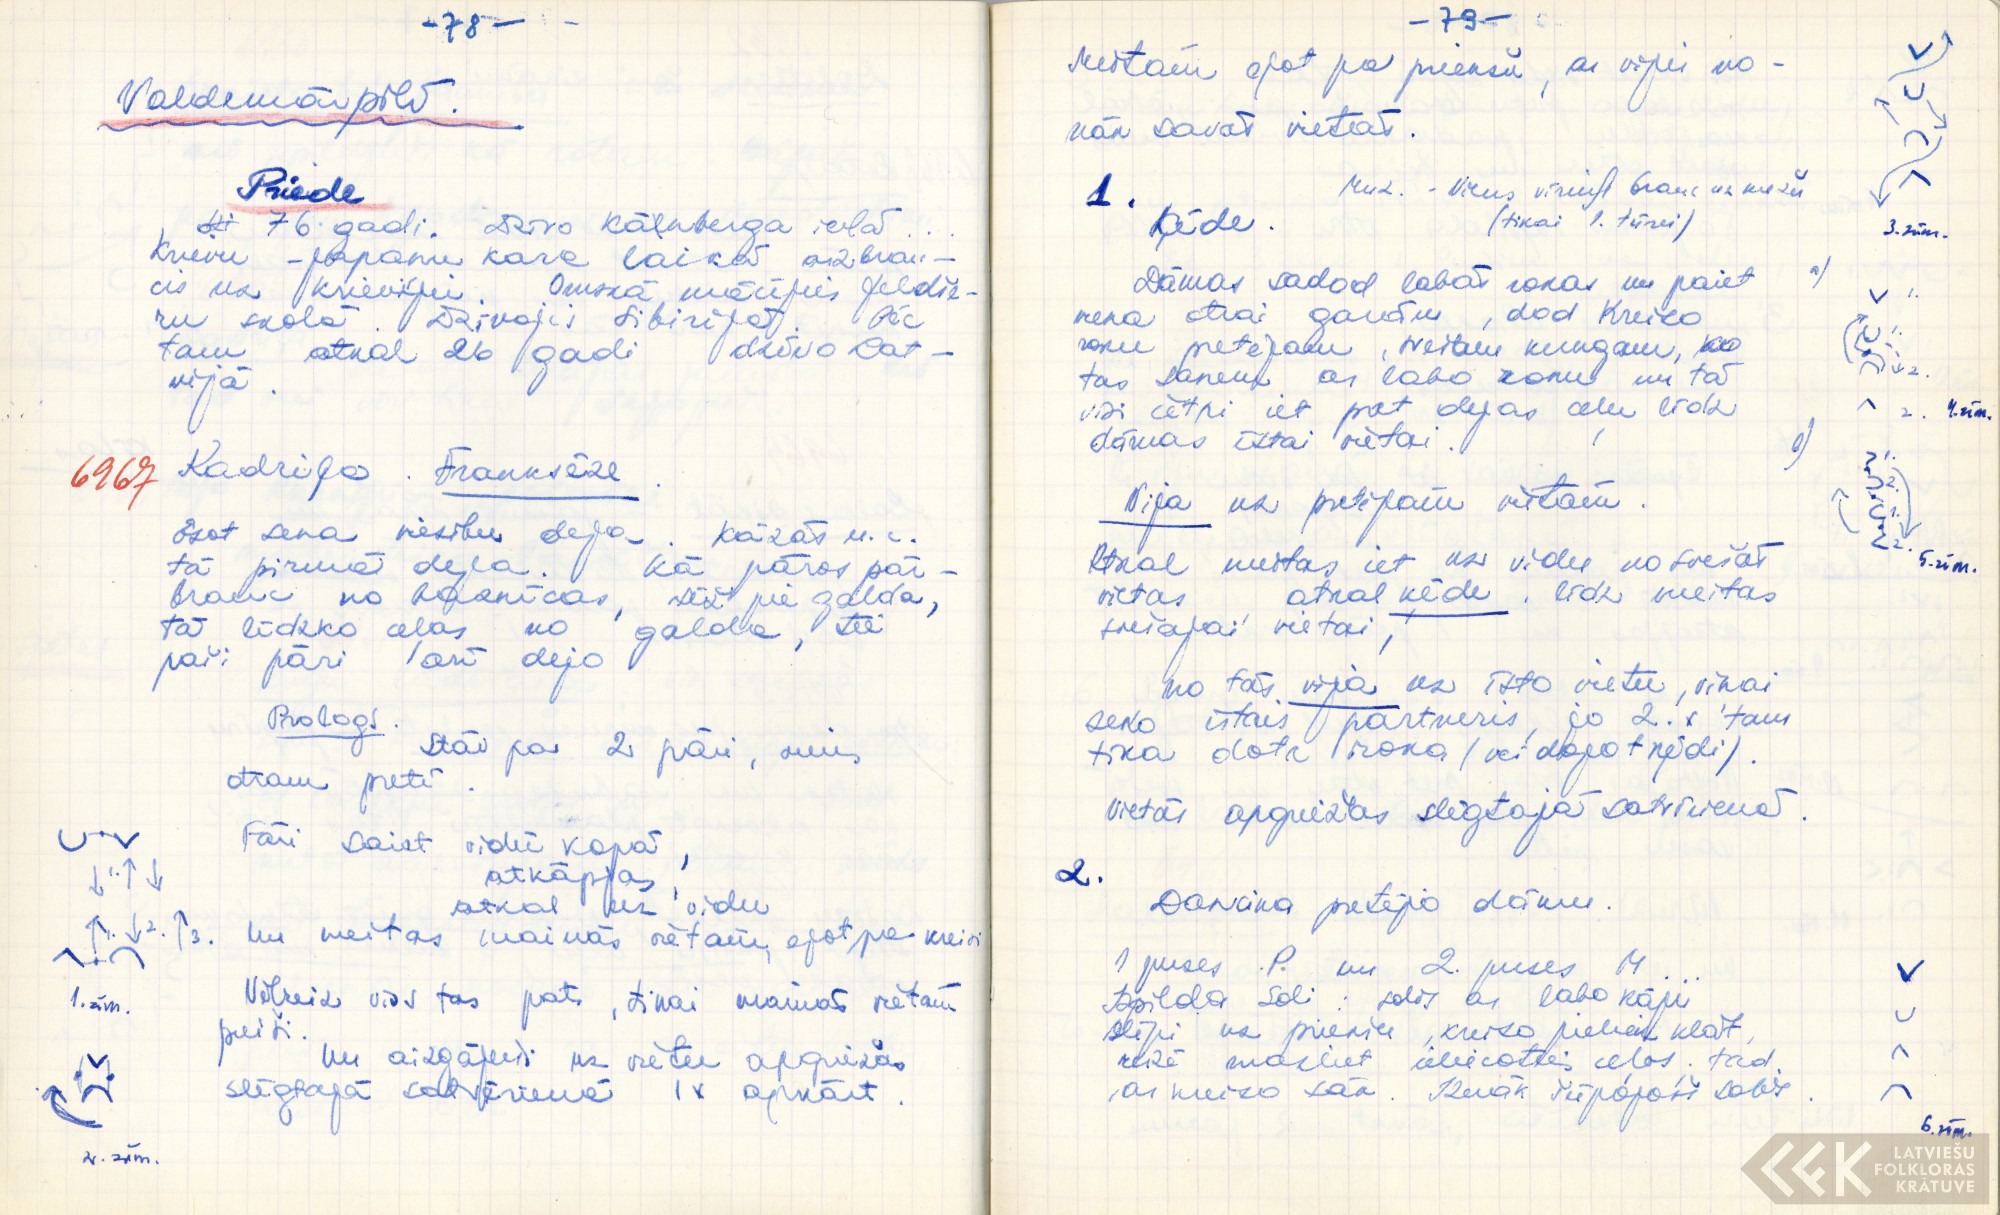 -78-
Valdemārpilī.
Priede
76 gadi. Dzīvo Kalnberga ielā...
Krievu - japānu kara laikā aizbrau-
cis uz Krieviju. Omskā mācījies feldše-
ru skolā. Dzīvojis Sibīrijā. Pēc
tam atkal 26 gadi dzīvo Lat-
vijā.
6967 Kadriļa. Franksēze.
Esot sena viesību deja. Kāzās u.c.
tā pirmā deja. Kā pāros pār-
brauc no baznīcas, sēž pie galda,
tā līdzko ceļas no galda, tie
paši pāri arī dejo
Prologs.
Stāv pa 2 pāri, viens
otram pretī.
Pāri saiet vidū kopā,
atkāpjas,
atkal uz vidu
1. 2. 3. un meitas mainās vietām, ejot pa kreisi
1. zīm.
Vēlreiz viss tas pats, tikai mainās vietām
puiši.
Un aizgājuši uz vietu apgriežas
slēgtajā satvērienā 1x apkārt.
2. zīm.
-79-
Meitām ejot pa priekšu, ar viņu no-
nāk savās vietās.
3. zīm.
1. Muz. - Vienus vīriņus brauc uz mežu
Ķēde. (tikai 1. tūrei)
Dāmas sadod labās rokas un paiet
viena otrai garām, dod kreiso
roku pretējam, svešam kungam,
tas saņem ar labo roku un tā
visi četri iet pret dejas ceļu līdz
dāmas īstai vietai.
a)
1.
1.
2.
2. 4. zīm.
b)
Vija uz pretējām vietām.
Atkal meitas iet uz vidu no svešās
vietas atkal ķēde līdz meitas
svešajai vietai,
5. zīm.
no tās vija uz īsto vietu, viņai
seko īstais partneris, jo 2.x tam
tika dota roka (vēl dejot ķēdi).
Vietās apgriežas slēgtajā satvērienā.
2.
Dancina pretējo dāmu.
1 puses P. un 2. puses M...
izpilda soli: solis ar labo kāju
slīpi uz priekšu, kreiso pieliek klāt,
reizē mazliet ieliecoties ceļos. tad
ar kreiso sāk. Iznāk šūpojošs solis.
6. zīm.
LATVIEŠU
FOLKLORAS
KRĀTUVE